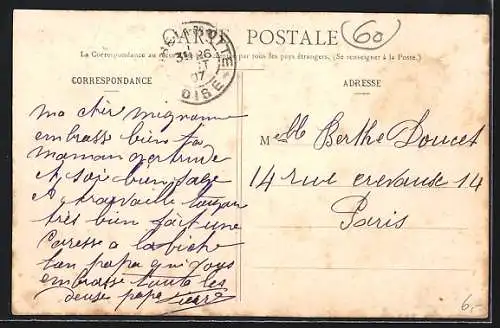 CARTE POSTALE
60
La Correspondance au pas par tous les pays étrangers. (Se renseigner à la Poste.)
CORRESPONDANCE
ADRESSE
3 26
07
OISE
ma chér mignonne
embrasse bien ta
maman gertrude
soié bien sage
travaille toujour
très bien fait une
Caresse a la biche
ton papa qui vous
embrasse toute les
deuse papa Pierre
Melle Berthe Doucet
14 rue crevause 14
Paris
6,-